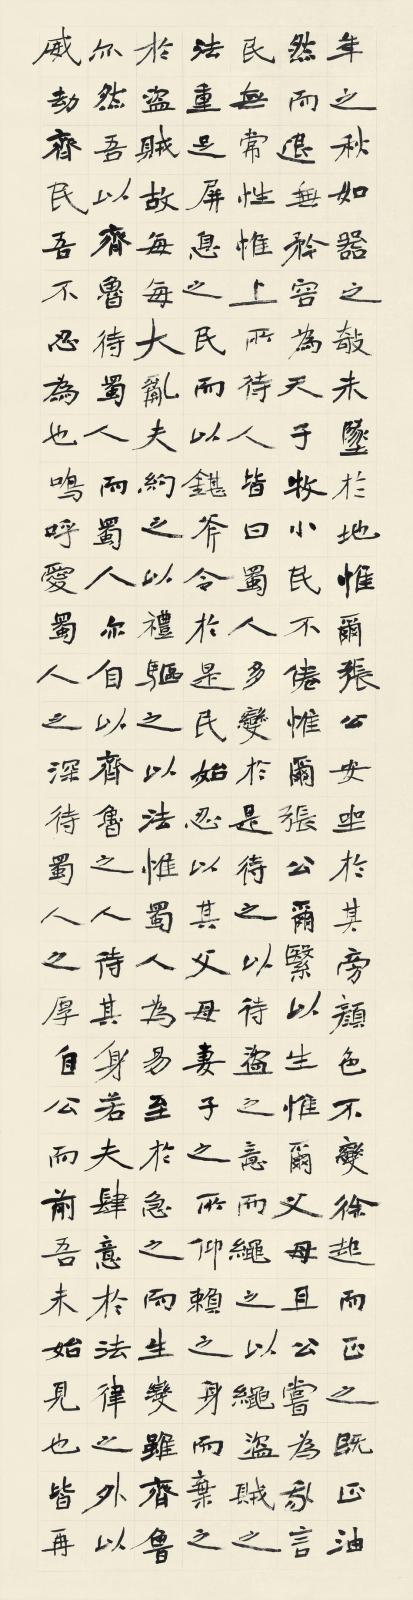 年之秋如器之敧未墜於地惟爾張公安坐於其旁顏色不變徐起而正之既正油
然而退無矜容為天子牧小民不倦惟爾張公爾繄以生惟爾父母且公嘗為我言
民無常性惟上所待人皆曰蜀人多變於是待之以待盜之意而繩之以繩盜賊之
法重足屏息之民而以鍖斧令於是民始忍以其父母妻子之所仰賴之身而棄之
於盜賊故每每大亂夫約之以禮驅之以法惟蜀人為易至於急之而生變雖齊魯
尔然吾以齊魯待蜀人而蜀人尔自以齊魯之人待其身若夫肆意於法律之外以
威劫齊民吾不忍為也嗚呼愛蜀人之深待蜀人之厚自公而前吾未始見也皆再